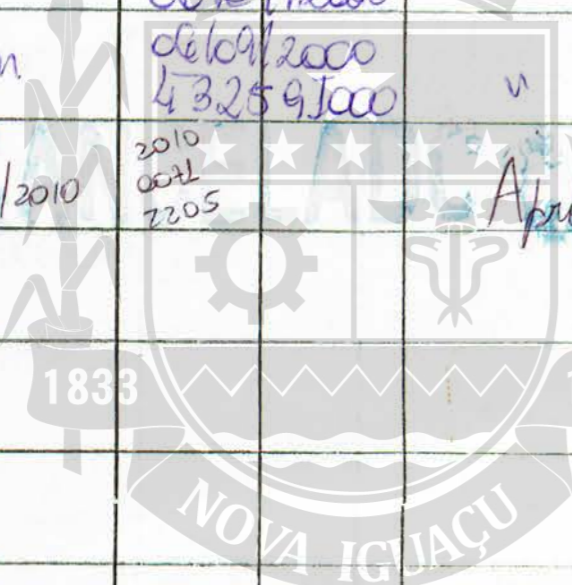 06/09/2000
432591000
/2010
2010
0071
2205
1833
NOVA IGUAÇU